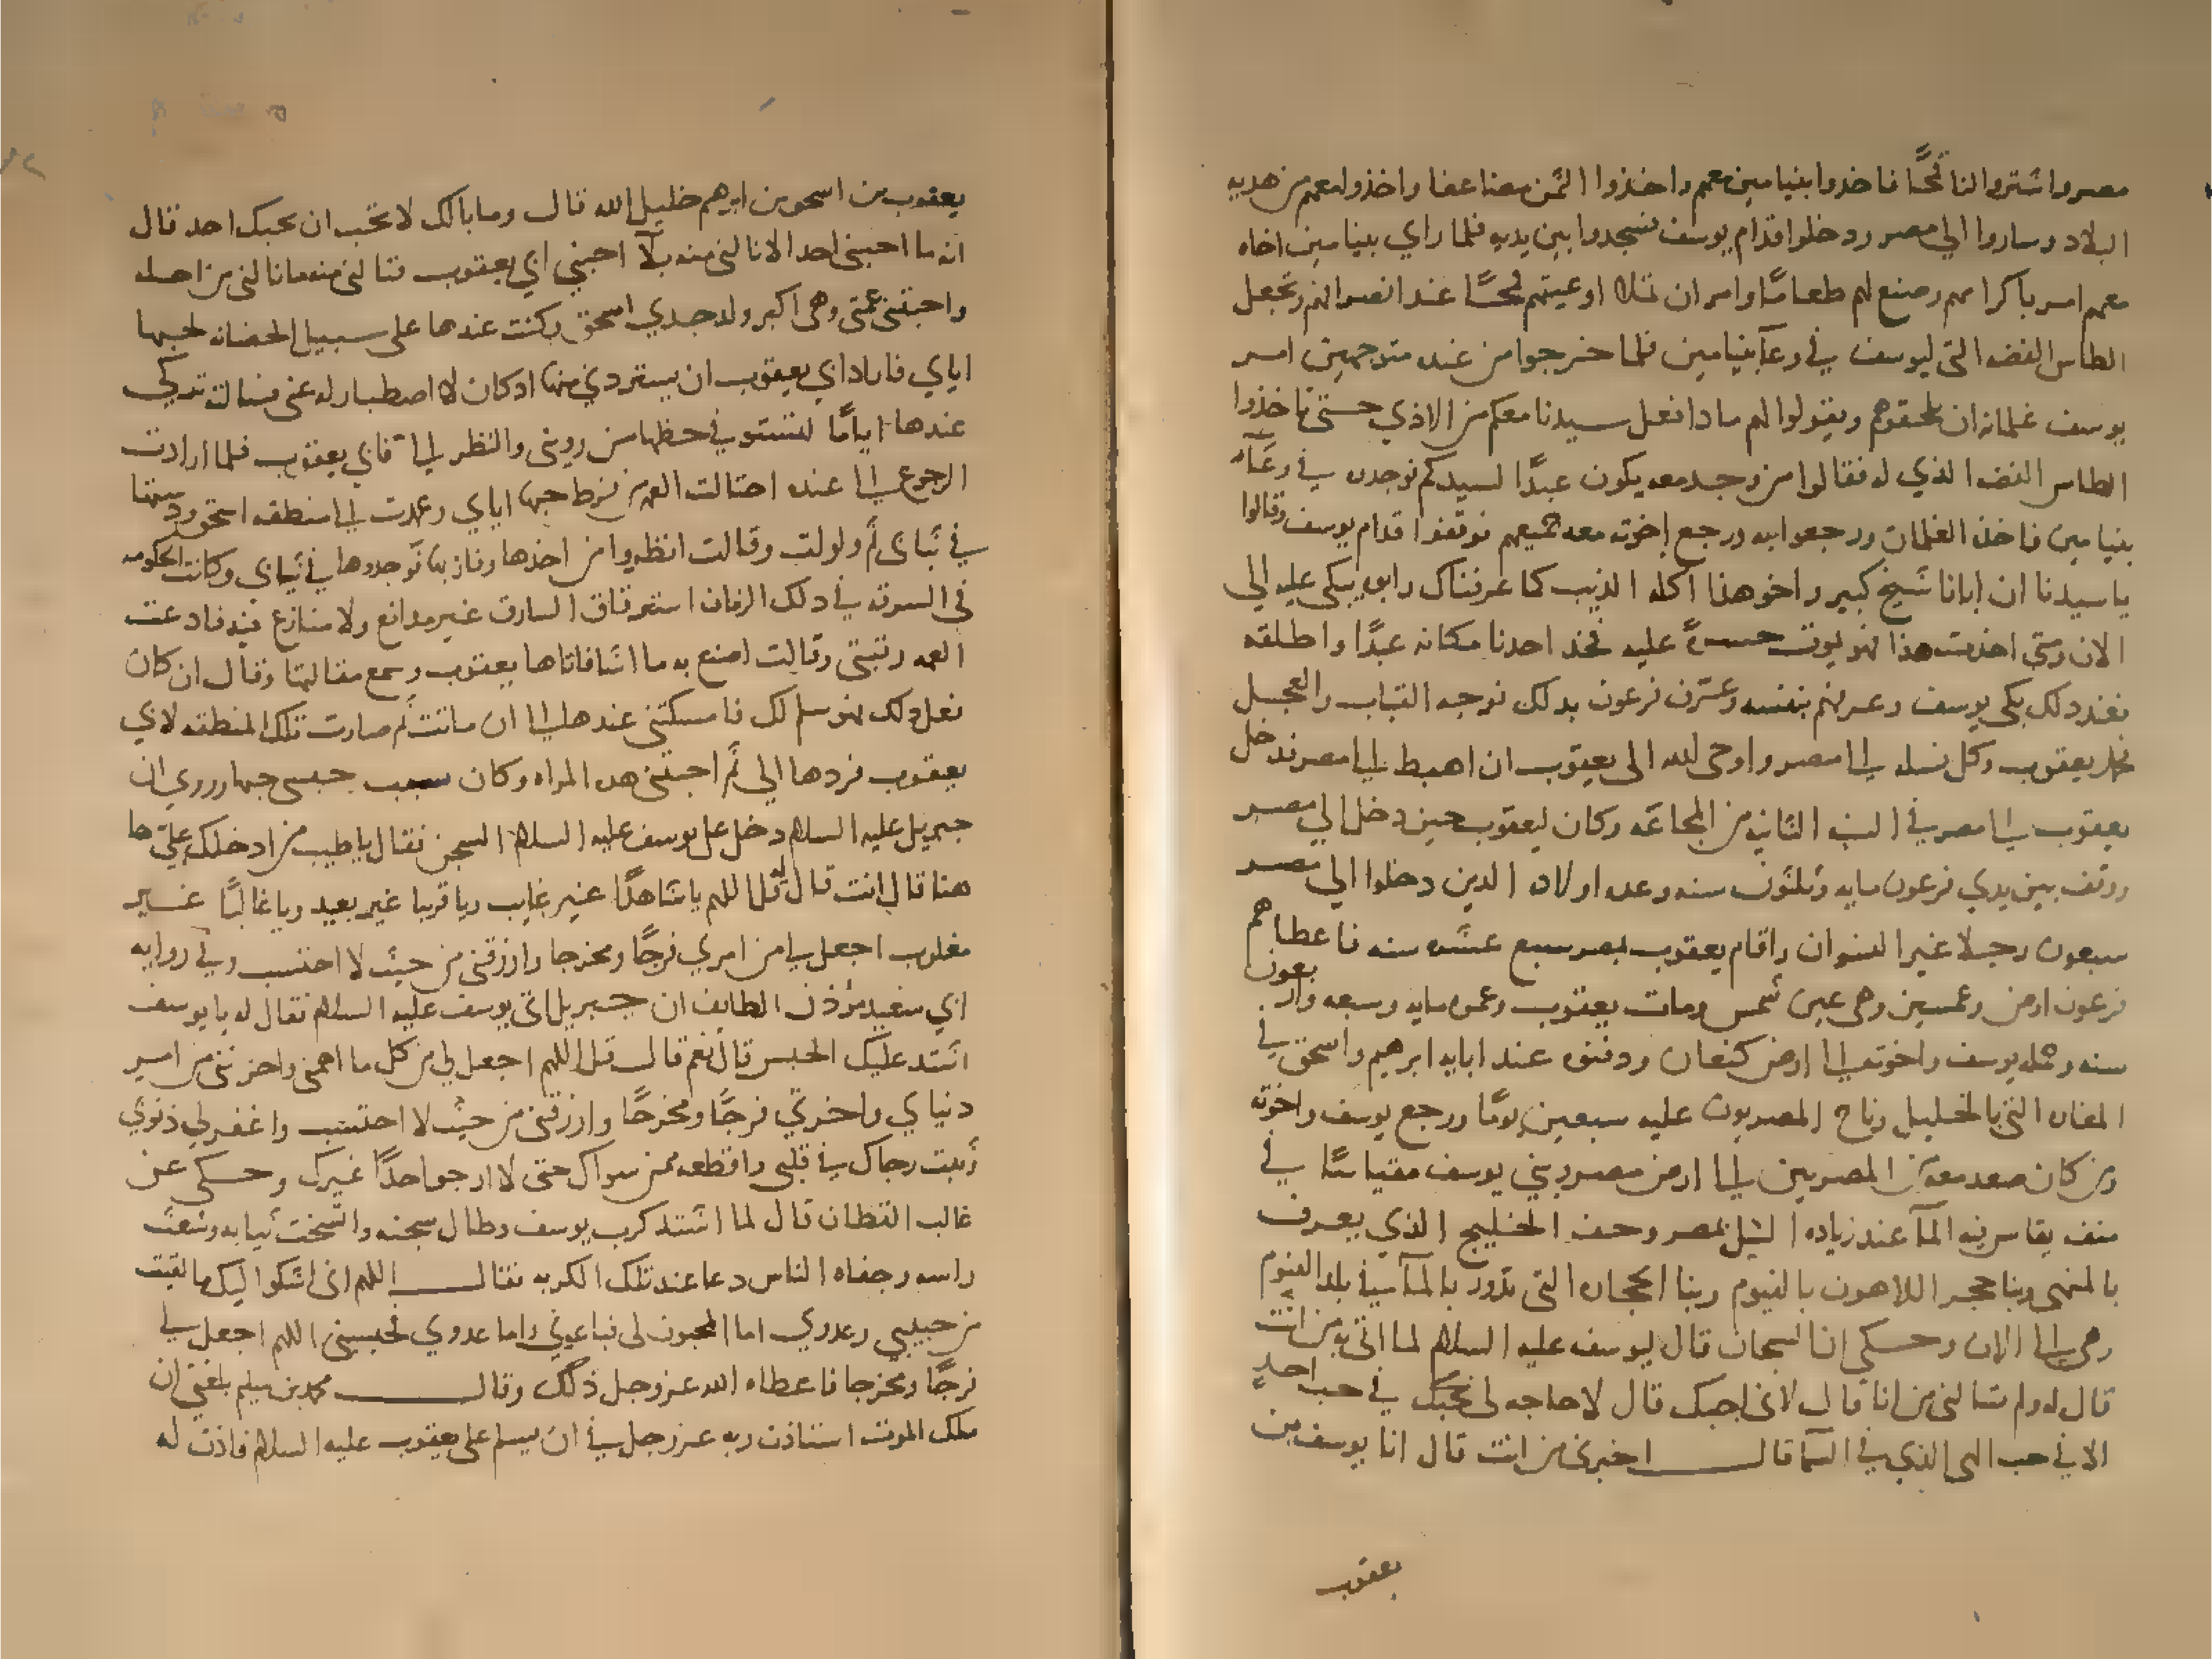 مصر واشتروا لنا قمحًا فاخدوا بنيامين معهم واخذوا الثمن مضاعفا واخذوا معهم من هديه
البلاد وساروا الي مصر ودخلوا قدام يوسف فسجدوا بين يديه فلما راي بنيامين اخاه
معهم امر باكرامهم وصنع لهم طعامًا وامر ان تملا اوعيتهم قمحًا عند انصرافهم وتجعل
الطاس الفضه التي ليوسف في وعآ بنيامين فلما خرجوا من عنده متوجهين امر
يوسف غلمانه ان يلحقوهم ويقولوا لهم مادا فعل سيدنا معكم من الاذي حتى تاخذوا
الطاس الفضه الذي له فقالوا من وجد معه يكون عبدًا لسيدكم فوجده في وعآء
بنيامين فاخذه الغلمان ورجعوا به ورجع إخوته معه جميعهم فوقفوا قدام يوسف وقالوا
يا سيدنا ان ابانا شيخ كبير واخو هذا اكله الذيب كما عرفناك وابوه يبكي عليه الي
الان ومتي اخذت هذا فهو يموت حسرةً عليه فخد احدنا مكانه عبدًا واطلقه
فعند دلك بكى يوسف وعرفهم بنفسه وعرف فرعون بدلك فوجه القباب والعجل
فحمل يعقوب وكل نسله الى مصر واوحى الله الى يعقوب ان اهبط الى مصر فدخل
يعقوب الى مصر في السنه الثانيه من المجاعه وكان ليعقوب حين دخل الي مصر
ووقف بين يدي فرعون مايه وثلثون سنه وعده اولاده الدين دخلوا الي مصر
سبعون رجلا غير النسوان واقام يعقوب بمصر سبع عشره سنه فاعطاهم
فرعون ارض رعمسيس وهى عين شمس ومات يعقوب وعمره مايه وسبعه واربعون
سنه وحمله يوسف واخوته الى ارض كنعان ودفنوه عند ابايه ابرهيم واسحق في
المغاره التي بالخليل وناح المصريون عليه سبعين يومًا ورجع يوسف واخوته
ومن كان صعد معه من المصريين الى ارض مصر وبني يوسف مقياسًا في
منف يقاس فيه المآ عند زياده النيل بمصر وحفر الخليج الذي يعرف
بالمنهى وبنا حجر اللاهون بالفيوم وبنا الحجاره التى تدور بالمآ في بلد الفيوم
وهى الى الان وحكي ان السجان قال ليوسف عليه السلام لما اتى به من انت
قال له ولم تسالني من انا قال لانى احبك قال لا حاجه لى بحبك في حب احدٍ
الا في حب الهى الذي في السمآ قال اخبرنى من انت قال انا يوسف بن
يعقوب
يعقوب بن اسحق بن ابرهيم خليل الله قال وما بالك لا تحب ان يحبك احد قال
انه ما احبني احد الا نالني منه بلآ احبني ابي يعقوب فنالني منه ما نالني من اجله
واحبتني عمتي وهى اكبر ولد جدي اسحق وكنت عندها على سبيل الحضانه لحبها
اياي فاراد ابي يعقوب ان يستردني منها ادكان لا اصطبار له عنى فسالته تركي
عندها ايامًا لتستوفي حظها من رويتي والنظر الي فابي يعقوب فلما ارادت
الرجوع الى عنده احتالت العمه من فرط حبها اياي وعمدت الى منطقه اسحق ودستها
في ثيابى ثم ولولت وقالت انظروا من اخذها وفاز بها فوجدوها في ثيابى وكانت الحكومه
في السرقه في دلك الزمان استرقاق السارق غير مدافع ولا منازع فيه فادعت
العمه رقبتى وقالت اصنع به ما اشا فاتاها يعقوب وسمع مقالتها وقال ان كان
فعل دلك فهو سلم لك فامسكتنى عندها الى ان ماتت ثم صارت تلك المنطقه لابي
يعقوب فردها الي ثم احبتنى هده المراه وكان سبب حبسى حبها وروي ان
جبريل عليه السلام دخل على يوسف عليه السلام السجن فقال يا طيب من ادخلك علي ها
هنا قال انت قال له قل اللهم يا شاهدًا غير غايب ويا قريبا غير بعيد ويا غالبًا غير
مغلوب اجعل لي من امري فرجًا ومخرجا وارزقنى من حيث لا احتسب وفي روايه
ابي سعيد مؤذن الطايف ان جبريل اتى يوسف عليه السلام فقال له يا يوسف
اشتد عليك الحبس قال نعم قال قل اللهم اجعل لي من كل ما اهمني واحزنني من امر
دنياي واخرتي فرجًا ومخرجًا وارزقنى من حيث لا احتسب واغفر لي ذنوبي
وثبت رجاك في قلبي واقطعه ممن سواك حتى لا ارجو احدًا غيرك وحكى عن
غالب القطان قال لما اشتد كرب يوسف وطال سجنه واتسخت ثيابه وشعث
راسه وجفاه الناس دعا عند تلك الكربه فقال اللهم انى اشكوا اليك ما لقيت
من حبيبي وعدوي اما المحبون لى فباعوني واما عدوي فحبسني اللهم اجعل لي
فرجًا ومخرجا فاعطاه الله عز وجل ذلك وقال محمد بن سيلم بلغني ان
ملك الموت استاذن ربه عز وجل في ان يسلم على يعقوب عليه السلام فاذن له